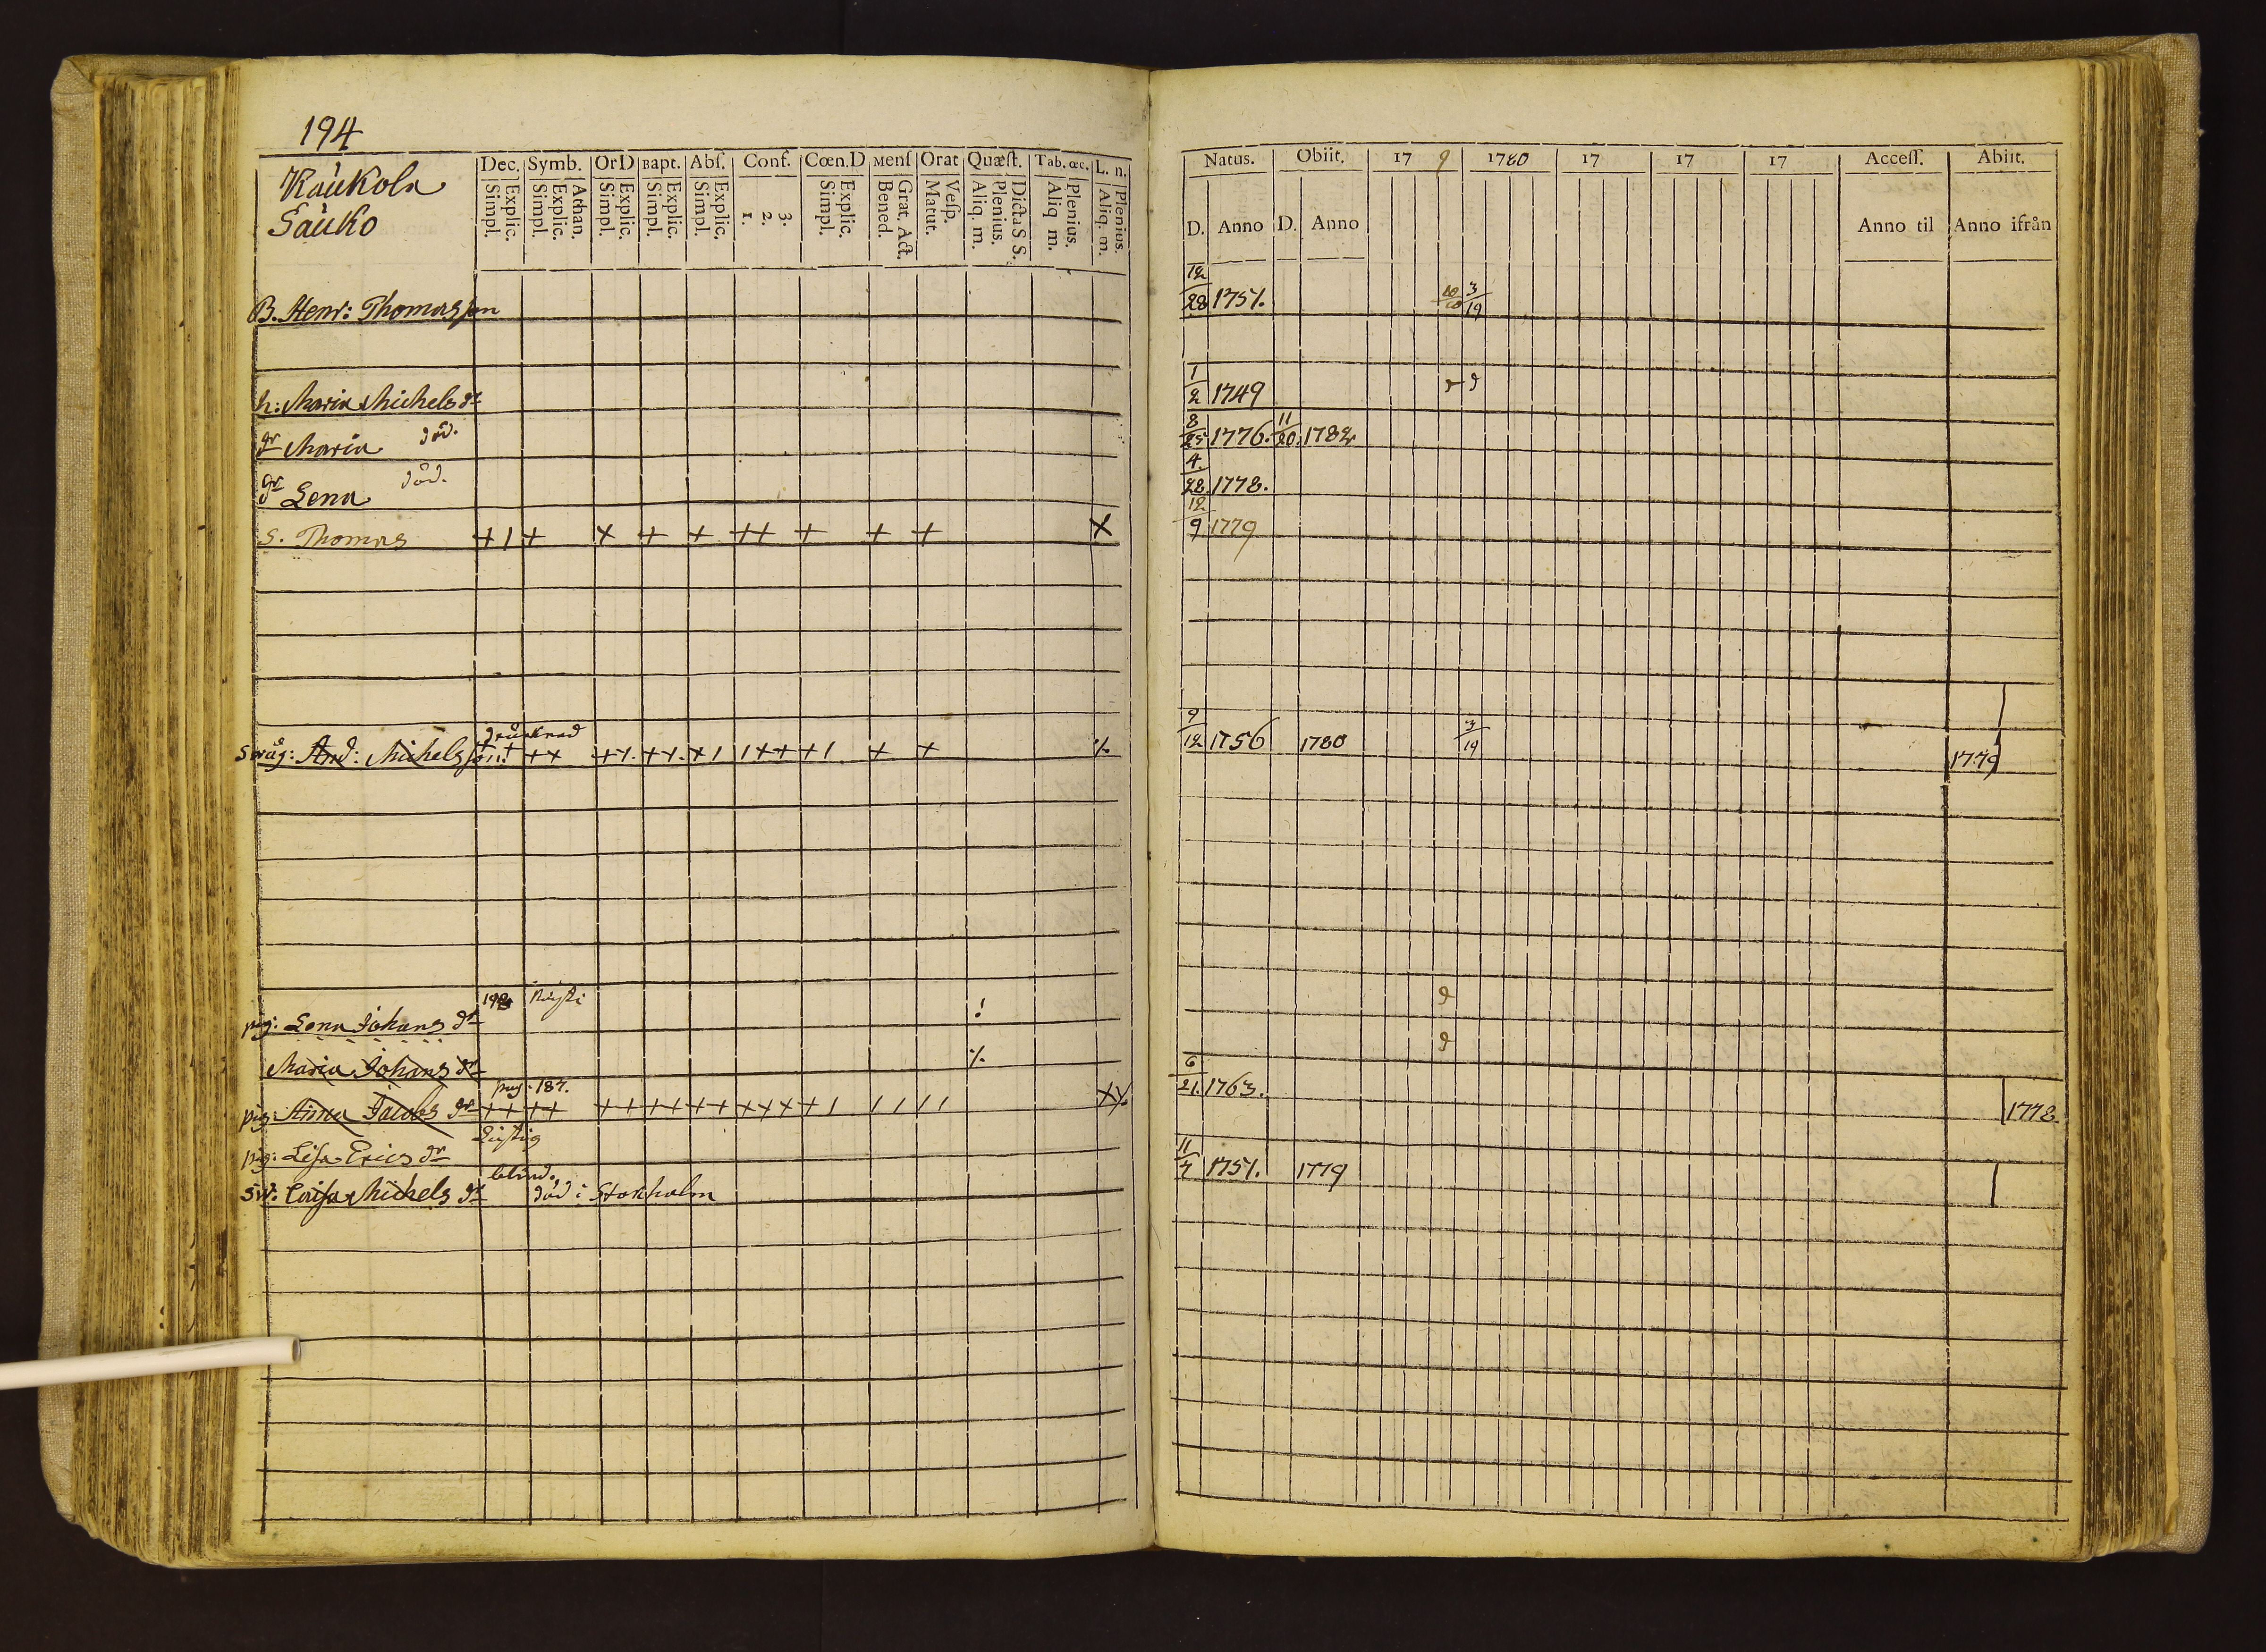 194
Kaukola
Sauko
Dec. Symb. OrD Bapt. Abſ. Conf. Cœn.D Menſ Orat Quæſt. Tab. œc. L. n.
Explic. Simpl. Athan. Explic. Simpl. Explic. Simpl. Explic. Simpl. Explic. Simpl. 3. 2. 1. Explic. Simpl. Grat. Act. Bened. Veſp. Matut. Dicta S S. Plenius. Aliq. m. Plenius. Aliq m. Plenius. Aliq. m.
B. Henr: Thomasson
h: Maria Michels dr
dr Maria död.
dr Lena död.
S. Thomas + 1 + + + + ++ + + + X
drunknad
Swåg: And: Michelsson
pig: Lena Johans dr
Maria Johans dr
pag: 187.
pig: Anna Jacobs dr
pig: Lisa Erics dr
blind.
Sw: Caisa Michels dr död i Stokholm
Natus. Obiit. 17 9 1780 17 17 17 Acceſſ. Abiit.
D. Anno D. Anno Anno til Anno ifrån
12/28 1751. 3/19
1/2 1749
8/25 1776. 11/20. 1782
4./28. 1778.
12/9 1779
9/12 1756 1780 3/19 1779
6/21. 1763. 1778.
11/7 1751. 1779